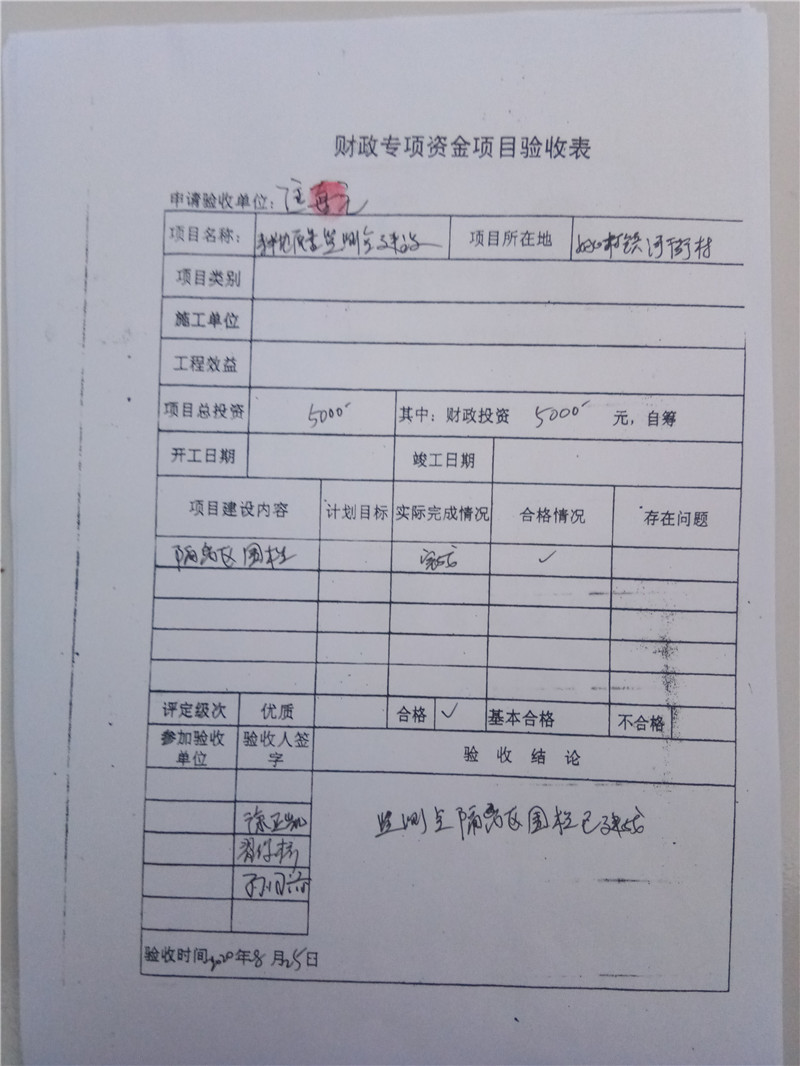 财政专项资金项目验收表
申请验收单位：汪
项目名称： 耕地质量监测点建设 项目所在地 铁河街村
项目类别
施工单位
工程效益
项目总投资 5000 其中：财政投资 5000 元，自筹
开工日期 竣工日期
项目建设内容 计划目标 实际完成情况 合格情况 存在问题
隔离区围栏 完成 ✓
评定级次 优质 合格 ✓ 基本合格 不合格
参加验收单位 验收人签字 验收结论
监测点隔离区围栏已建成
验收时间2020年8月25日